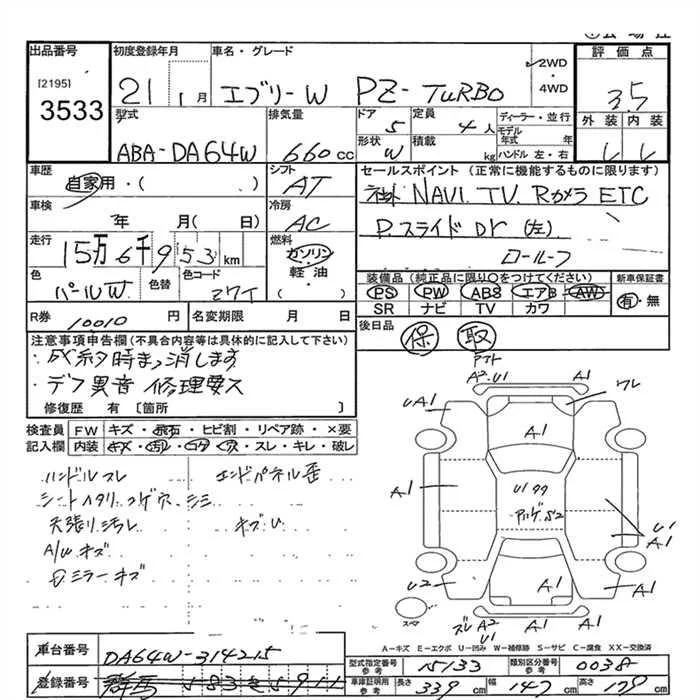 出品番号
[2195]
3533
初度登録年月
21 1月
車名・グレード
エブリーW PZ-TURBO
2WD
・
4WD
評価点
3.5
外装 内装
型式
ABA-DA64W
排気量
660cc
ドア
5
定員
4人
形状
W
積載
kg
ディーラー・並行
モデル年式 年
ハンドル 左・右
車歴
自家用・( )
シフト
AT
車検
年 月( 日)
冷房
AC
走行
15万6千953km
燃料
ガソリン
軽油
( )
色
パールW
色替
色コード
Z7T
セールスポイント(正常に機能するものに限ります)
社外NAVI.TV.Rカメラ ETC
P.スライドDr(左)
ロールーフ
装備品(純正品に限り○をつけてください)
PS PW ABS エアB AW
SR ナビ TV カワ
新車保証書
有・無
R券
10010円
名変期限 月 日
後日品
保 取
注意事項申告欄(不具合内容等は具体的に記入して下さい)
・成約時まっ消します
・デフ異音 修理要ス
修復歴 有〔箇所 〕
検査員記入欄
FW キズ・飛石・ヒビ割・リペア跡・×要
内装 キズ・汚レ・コゲ・穴・スレ・キレ・破レ
ハンドルスレ エンドパネル歪
シートヘタリ コゲ穴 シミ
天張リ汚レ. キズU
A/W キズ
ミラーキズ
A2.U1 A1
UA1 ワレ
A1
A1
U1
U1
A1
U2
A1
A1
A1
ズレ A2
U1
A1
スペア
A-キズ E-エクボ U-凹み W-補修跡 S-サビ C-腐食 XX-交換済
車台番号
DA64W-314215
登録番号
群馬 583 5911
型式指定番号
参考
15133
類別区分番号
参考
0038
車庫証明用
参考
長さ 339cm
幅 147cm
高さ 178cm